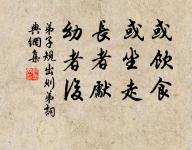 或飲食
或坐走
長者獻
幼者後
弟子規出則弟詞
典網集